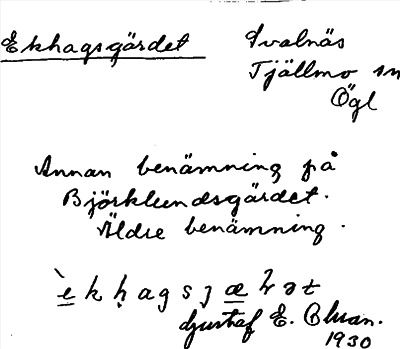 Ekhagsgärdet
Svalnäs
Tjällmo sn
Ögl
Annan benämning på
Björklundsgärdet.
Äldre benämning.
Gustaf E.
1930